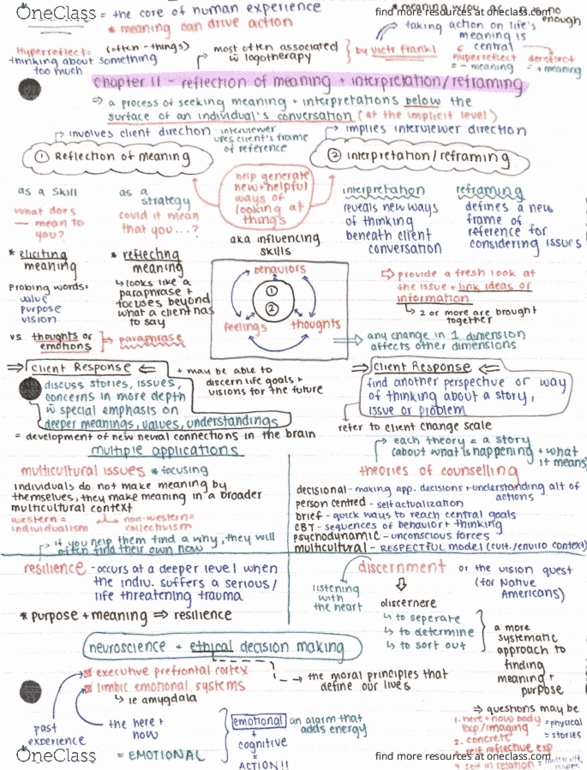 OneClass
find more resources at oneclass.com
= the core of human experience
* meaning can drive action
enough
→ taking action on life's
meaning is
central
Hyperreflect:
(often - things)
thinking about something
too much
most often associated
w logotherapy
by Victr Frankl
hyperreflect
= - meaning
dereflect
= + meaning
chapter 11 - reflection of meaning + interpretation/reframing
⇒ a process of seeking meaning + interpretations below the
surface of an individual's conversation (at the implicit level)
→ involves client direction
interviewer
uses client's frame
of reference
→ implies interviewer direction
① Reflection of meaning
② interpretation/reframing
help generate
new + helpful
ways of
looking at
things
aka influencing
skills
as a skill
what does
— mean to
you?
as a
strategy
could it mean
that you...?
* eliciting
meaning
Probing words:
value
purpose
vision
* reflecting
meaning
↳ looks like a
paraphrase +
focuses beyond
what a client has
to say
vs thoughts or
emotions
⇒ paraphrase
behaviors
①
②
feelings
thoughts
interpretation
reveals new ways
of thinking
beneath client
conversation
reframing
defines a new
frame of
reference for
considering issues
⇨ provide a fresh look at
the issue + link ideas or
information
↳ 2 or more are brought
together
⇒ any change in 1 dimension
affects other dimensions
⇒ Client Response ⇐
discuss stories, issues,
concerns in more depth
w special emphasis on
deeper meanings, values, understandings
+ may be able to
discern life goals +
visions for the future
= development of new neural connections in the brain
⇒ Client Response ⇐
find another perspective or way
of thinking about a story,
issue or problem
refer to client change scale
multiple applications
multicultural issues * focusing
individuals do not make meaning by
themselves, they make meaning in a broader
multicultural context
western =
individualism
non-western =
collectivism
→ if you help them find a why, they will
often find their own now
→ each theory = a story
(about what is happening + what
it means)
theories of counselling
decisional - making app. decisions + understanding alt of
actions
person centred - self actualization
brief - quick ways to reach central goals
CBT - sequences of behavior + thinking
psychodynamic - unconscious forces
multicultural - RESPECTFUL model (cult./enviro context)
resilience - occurs at a deeper level when
the indiv. suffers a serious/
life threatening trauma
* purpose + meaning ⇒ resilience
discernment or the vision quest
(for Native
Americans)
listening
with
the heart
discernere
↳ to seperate
↳ to determine
↳ to sort out
a more
systematic
approach to
finding
meaning +
purpose
neuroscience + ethical decision making
executive prefrontal cortex
limbic emotional systems
↳ ie amygdala
→ the moral principles that
define our lives
past
experience
the here +
now
= EMOTIONAL
emotional
+
cognitive
=
ACTION!!
an alarm that
adds energy
⇒ questions may be
1. here + now body
exp/imaging
= physical
2. concrete
= stories
3. self reflective exp
4. self in relation =
OneClass
find more resources at oneclass.com